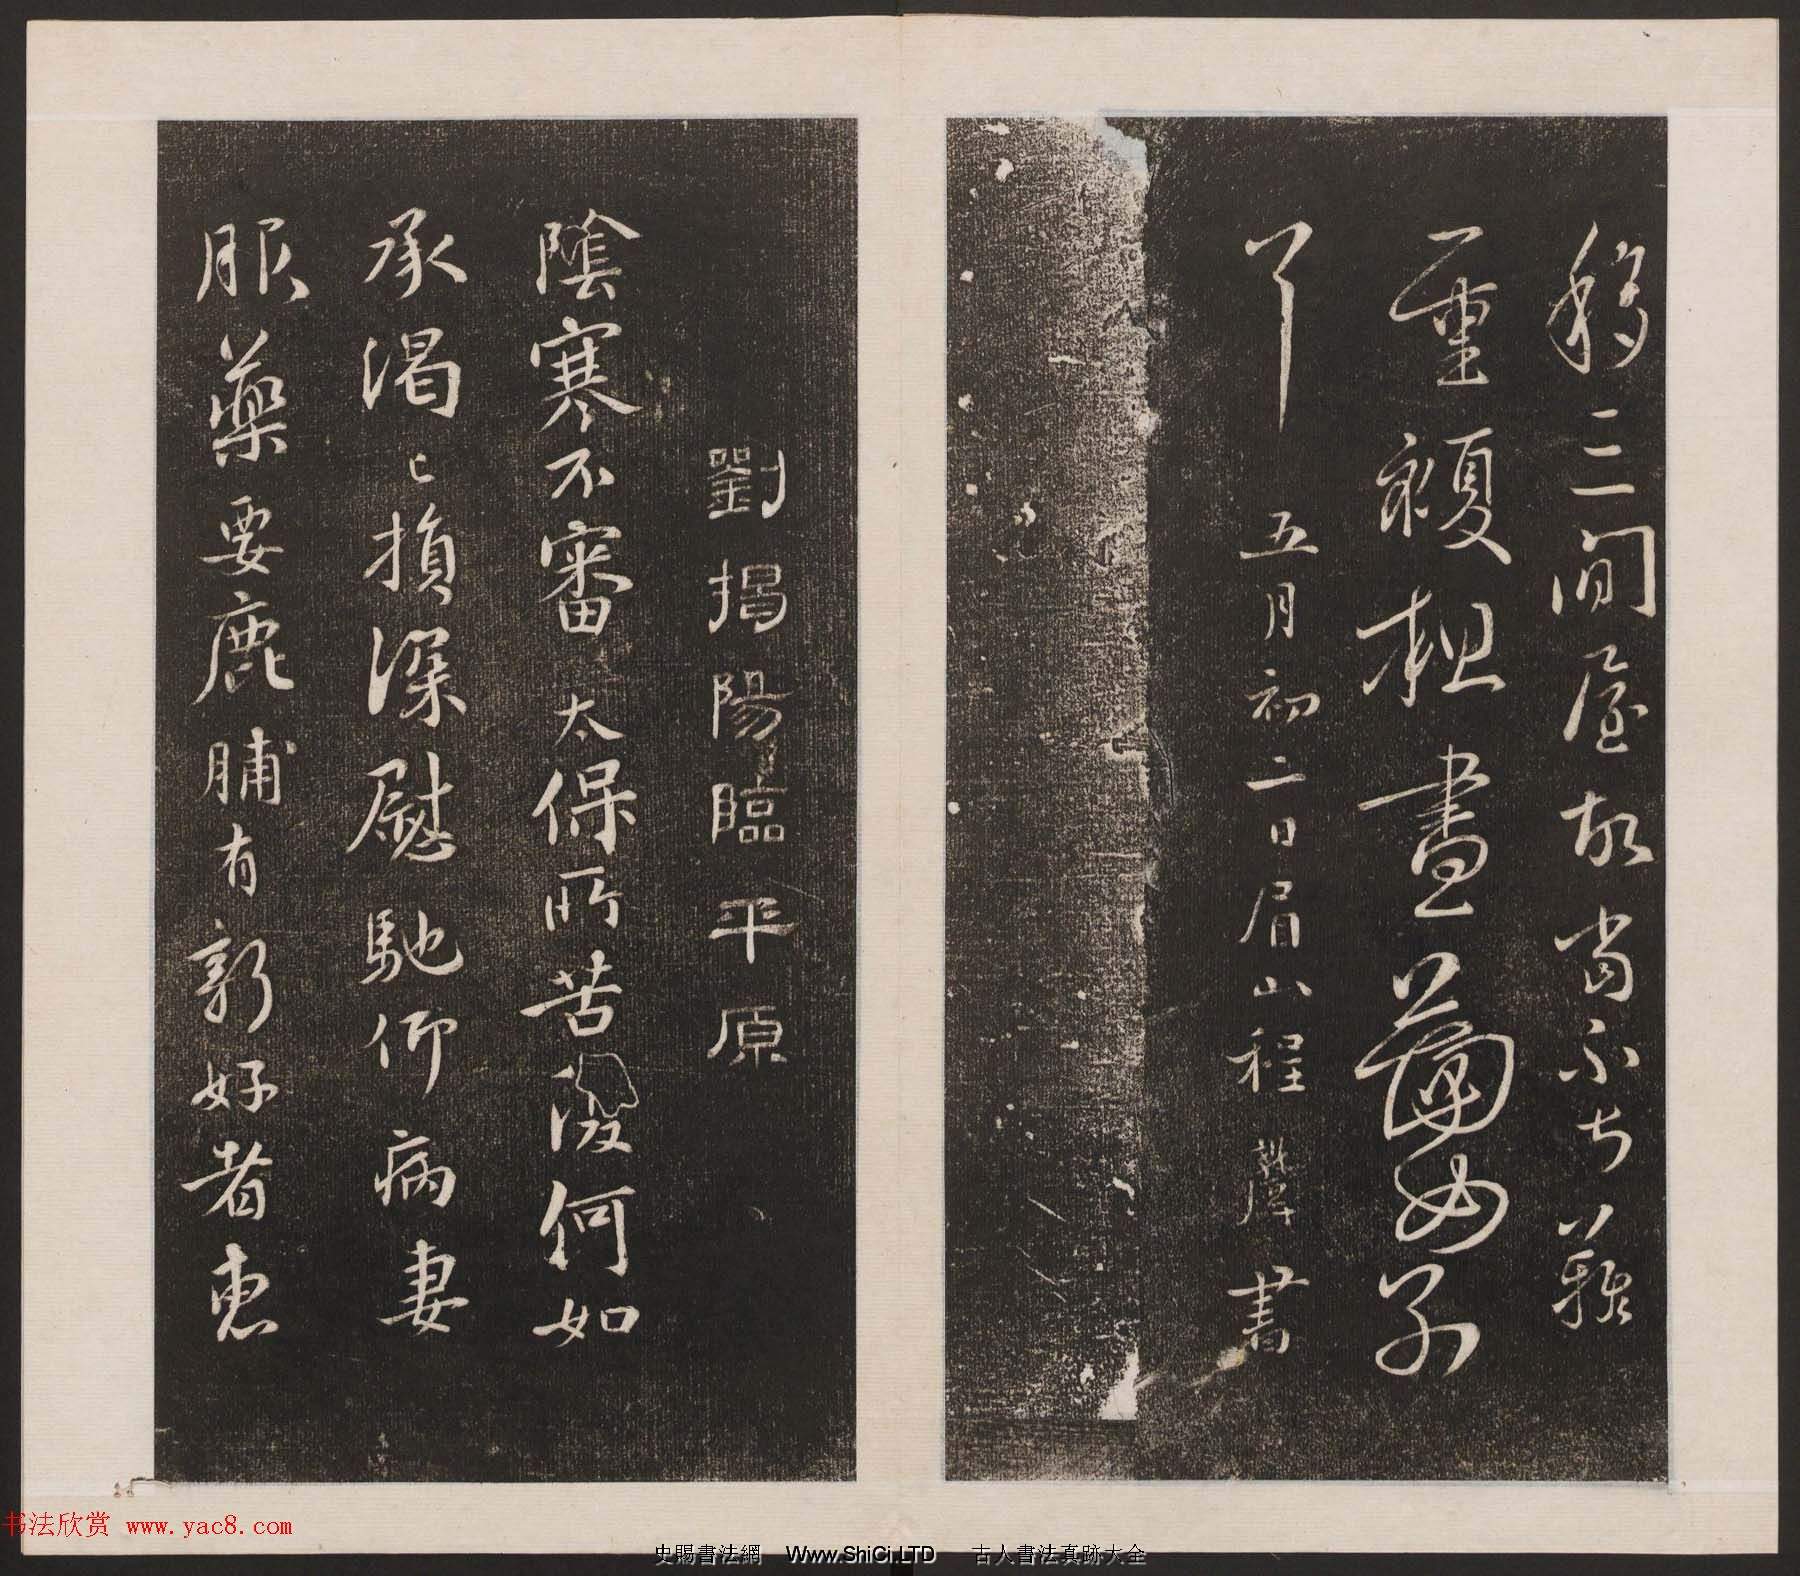 移三間屋故當不甚難
重顏粗書
耳
五月初二日眉山程
書
劉揭陽臨平原
陰寒不審太保所苦復何如
承渴已損深慰馳仰病妻
服藥要鹿脯有新好者惠
书法欣赏 www.yac8.com
史賜書法網 Www.ShiCi.LTD 古人書法真跡大全